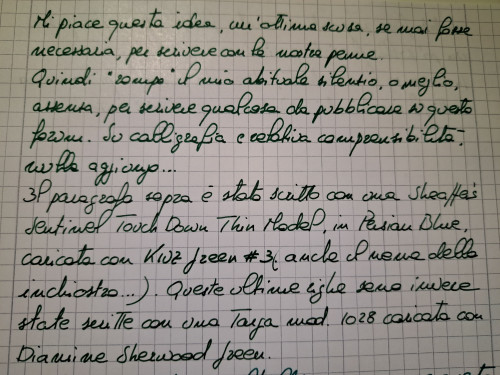 Mi piace questa idea, un'ottima scusa, se mai fosse
necessaria, per scrivere con le nostre penne.
Quindi "rompo" il mio abituale silenzio, o meglio,
assenza, per scrivere qualcosa da pubblicare su questo
forum. Su calligrafia e relativa comprensibilità,
nulla aggiungo...
Il paragrafo sopra è stato scritto con una Sheaffer's
Sentinel Touch Down Thin Model, in Persian Blue,
caricata con KWZ Green #3 ( anche il nome dello
inchiostro...). Queste ultime righe sono invece
state scritte con una Targa mod. 1028 caricata con
Diamine Sherwood Green.